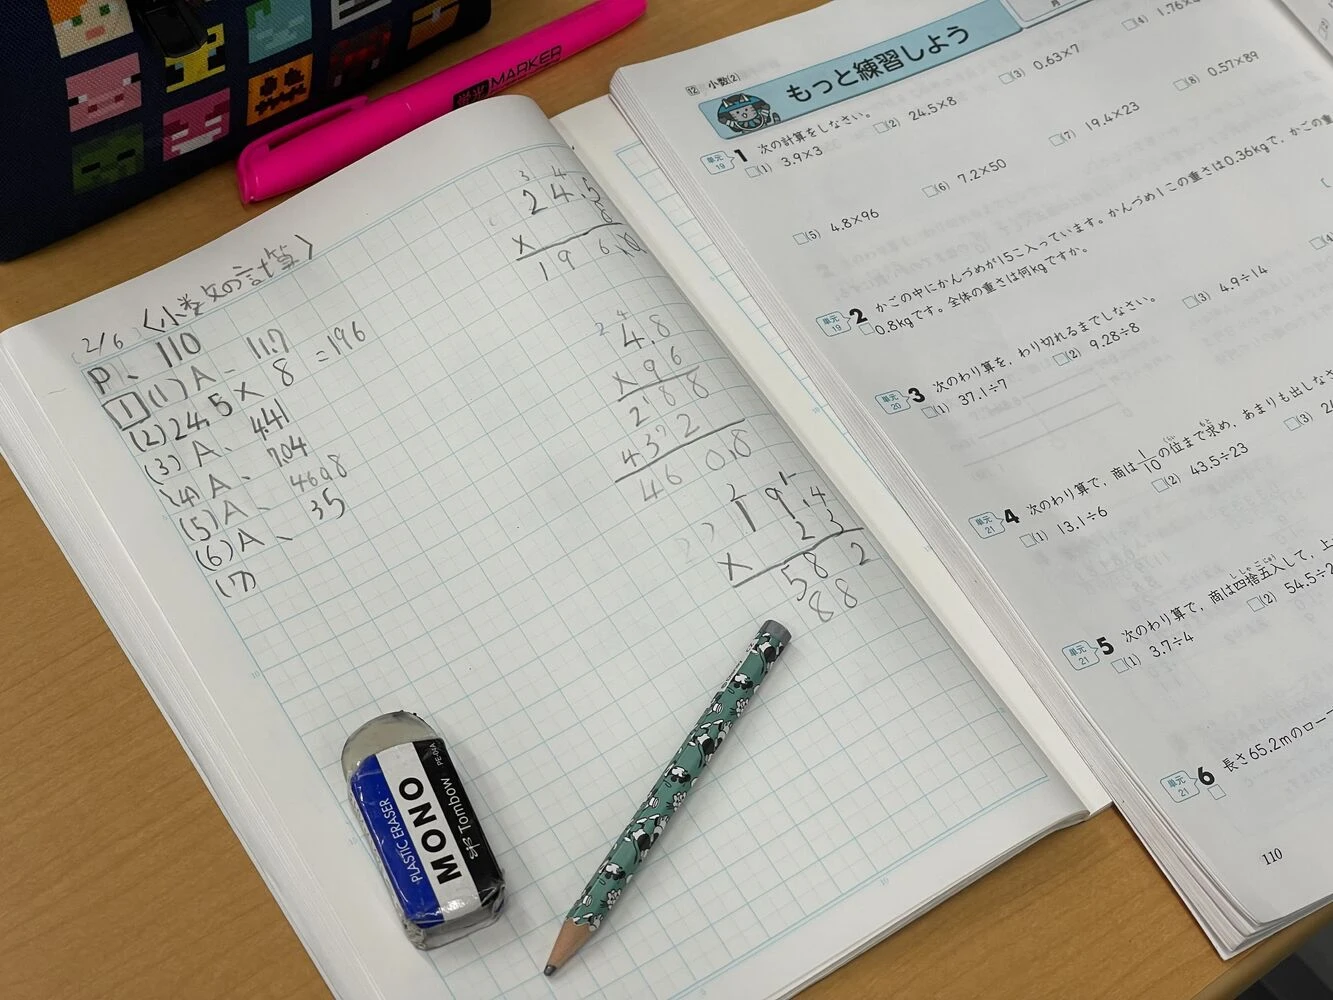 蛍光 MARKER
(2/6) 〈小数の計算〉
P、110
1 (1) A、11.7
(2) 24.5 × 8 = 196
(3) A、4.41
(4) A、7.04
(5) A、460.8
(6) A、35
(7)
3 4
24.5
8
×
196.0
2 4
4.8
×96
288
432
460.8
19.4
× 23
582
88
PLASTIC ERASER
MONO
Tombow PE-04A
12 小数(2)
もっと練習しよう
月
単元19 1 次の計算をしなさい。
(1) 3.9×3
(2) 24.5×8
(3) 0.63×7
(4) 1.76×
(5) 4.8×96
(6) 7.2×50
(7) 19.4×23
(8) 0.57×89
単元19 2 かごの中にかんづめが15こ入っています。かんづめ1この重さは0.36kgで、かごの重
0.8kgです。全体の重さは何kgですか。
単元20 3 次のわり算を、わり切れるまでしなさい。
(1) 37.1÷7
(2) 9.28÷8
(3) 4.9÷14
単元21 4 次のわり算で、商は1/10の位まで求め、あまりも出しなさ
(1) 13.1÷6
(2) 43.5÷23
(3)
単元21 5 次のわり算で、商は四捨五入して、上
(1) 3.7÷4
(2) 54.5÷2
単元21 6 長さ65.2mのロー
110